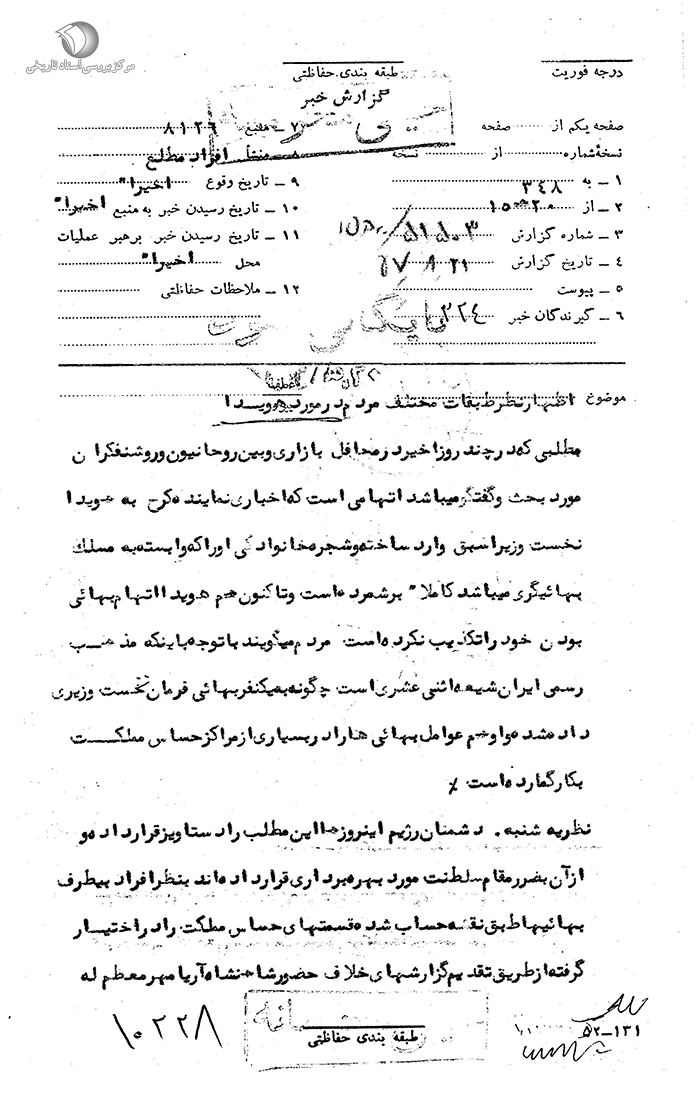 مرکز بررسی اسناد تاریخی
درجه فوریت
طبقه بندی حفاظتی
گزارش خبر
صفحه یکم از صفحه
نسخه شماره از نسخه
۱ – به ۳۴۸
۲ – از ۱۵ ه‍ ۲۰
۳ – شماره گزارش ۵۱۵۰۳/
۴ – تاریخ گزارش ۵۷/۸/۲۱
۵ – پیوست
۶ – گیرندگان خبر ۳۲۴
۷ – منبع ۸۱۲۶
۸ – منشأ افراد مطلع
۹ – تاریخ وقوع اخیرا"
۱۰ – تاریخ رسیدن خبر به منبع اخیرا"
۱۱ – تاریخ رسیدن خبر برهبر عملیات
محل اخیرا"
۱۲ – ملاحظات حفاظتی
بایگانی
موضوع اظهارنظر طبقات مختلف مردم در مورد هویدا
مطلبی که در چند روز اخیر در محافل بازاری و بین روحانیون و روشنفکران
مورد بحث و گفتگو میباشد اتهامی است که اخباری نماینده کرج به هویدا
نخست وزیر اسبق وارد ساخته و شجره خانوادگی او را که وابسته به مسلک
بهائیگری میباشد کاملا" برشمرده است و تاکنون هم هویدا اتهام بهائی
بودن خود را تکذیب نکرده است مردم میگویند با توجه باینکه مذهب
رسمی ایران شیعه اثنی عشری است چگونه به یکنفر بهائی فرمان نخست وزیری
داده شده و او هم عوامل بهائی ها را در بسیاری از مراکز حساس مملکت
بکار گمارده است ٪
نظریه شنبه . دشمنان رژیم اینروزها این مطلب را دستاویز قرار داده و
از آن بضرر مقام سلطنت مورد بهره برداری قرار داده اند بنظر افراد بیطرف
بهائیها طبق نقشه حساب شده قسمتهای حساس مملکت را در اختیار
گرفته از طریق تقدیم گزارشهای خلاف حضور شاهنشاه آریامهر معظم له
طبقه بندی حفاظتی
۵۲–۱۳۱
۱۰۲۲۸